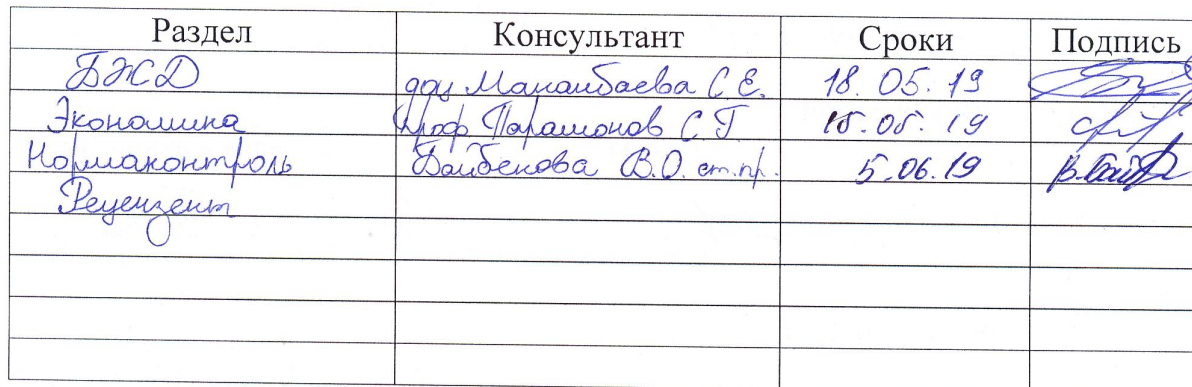 Раздел Консультант Сроки Подпись
БЖД доц Мананбаева С.Е. 18.05.19
Экономика проф Парамонов С.Г 15.05.19
Нормаконтроль Байбекова В.О. ст.пр. 5.06.19
Рецензент